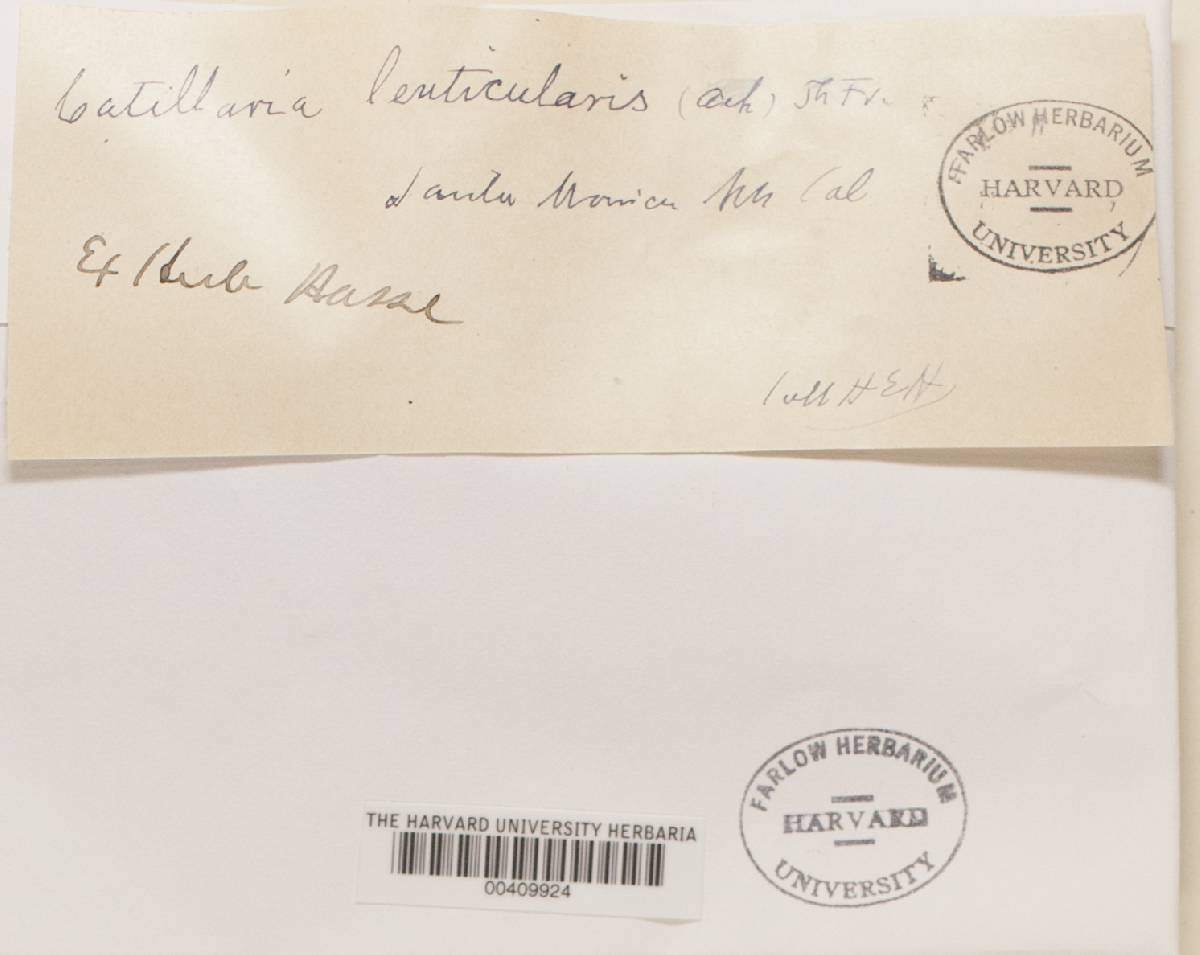 Catillaria lenticularis (Ach) Th Fr.
Santa Monica Mts Cal
Ex Herb Hasse
Coll H E H
FARLOW HERBARIUM
HARVARD
UNIVERSITY
THE HARVARD UNIVERSITY HERBARIA
00409924
FARLOW HERBARIUM
HARVARD
UNIVERSITY